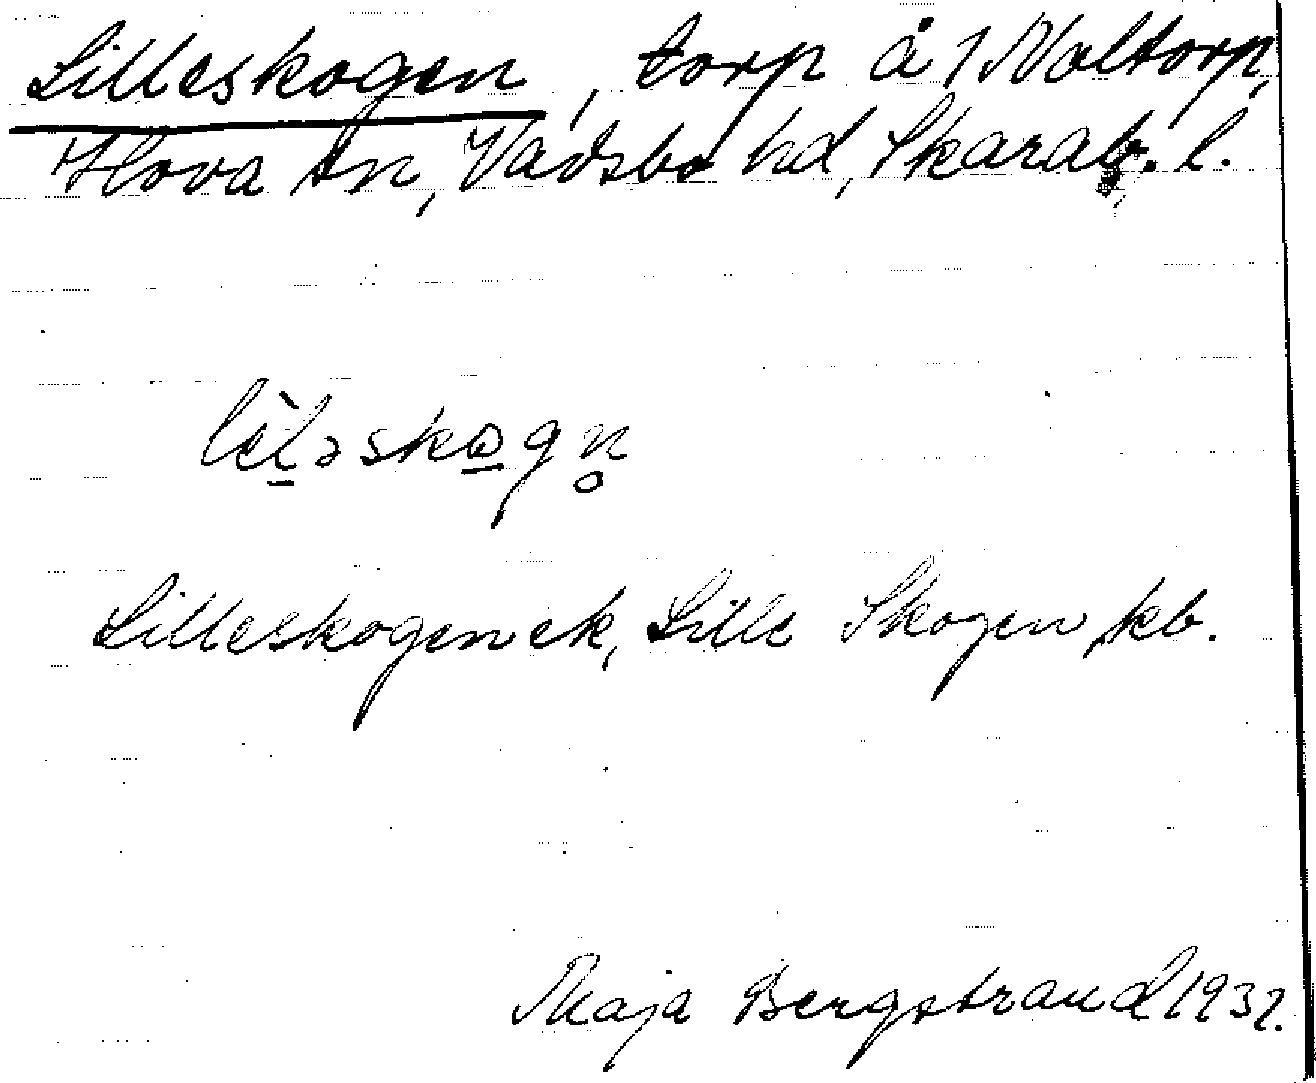 Lilleskogen, torp å 1 Noltorp,
Hova sn, Vadsbo hd, Skarab. l.
lèl̠əsko̠gn̥
Lilleskogen ek, Lille Skogen kb.
Maja Bergstrand 1932.